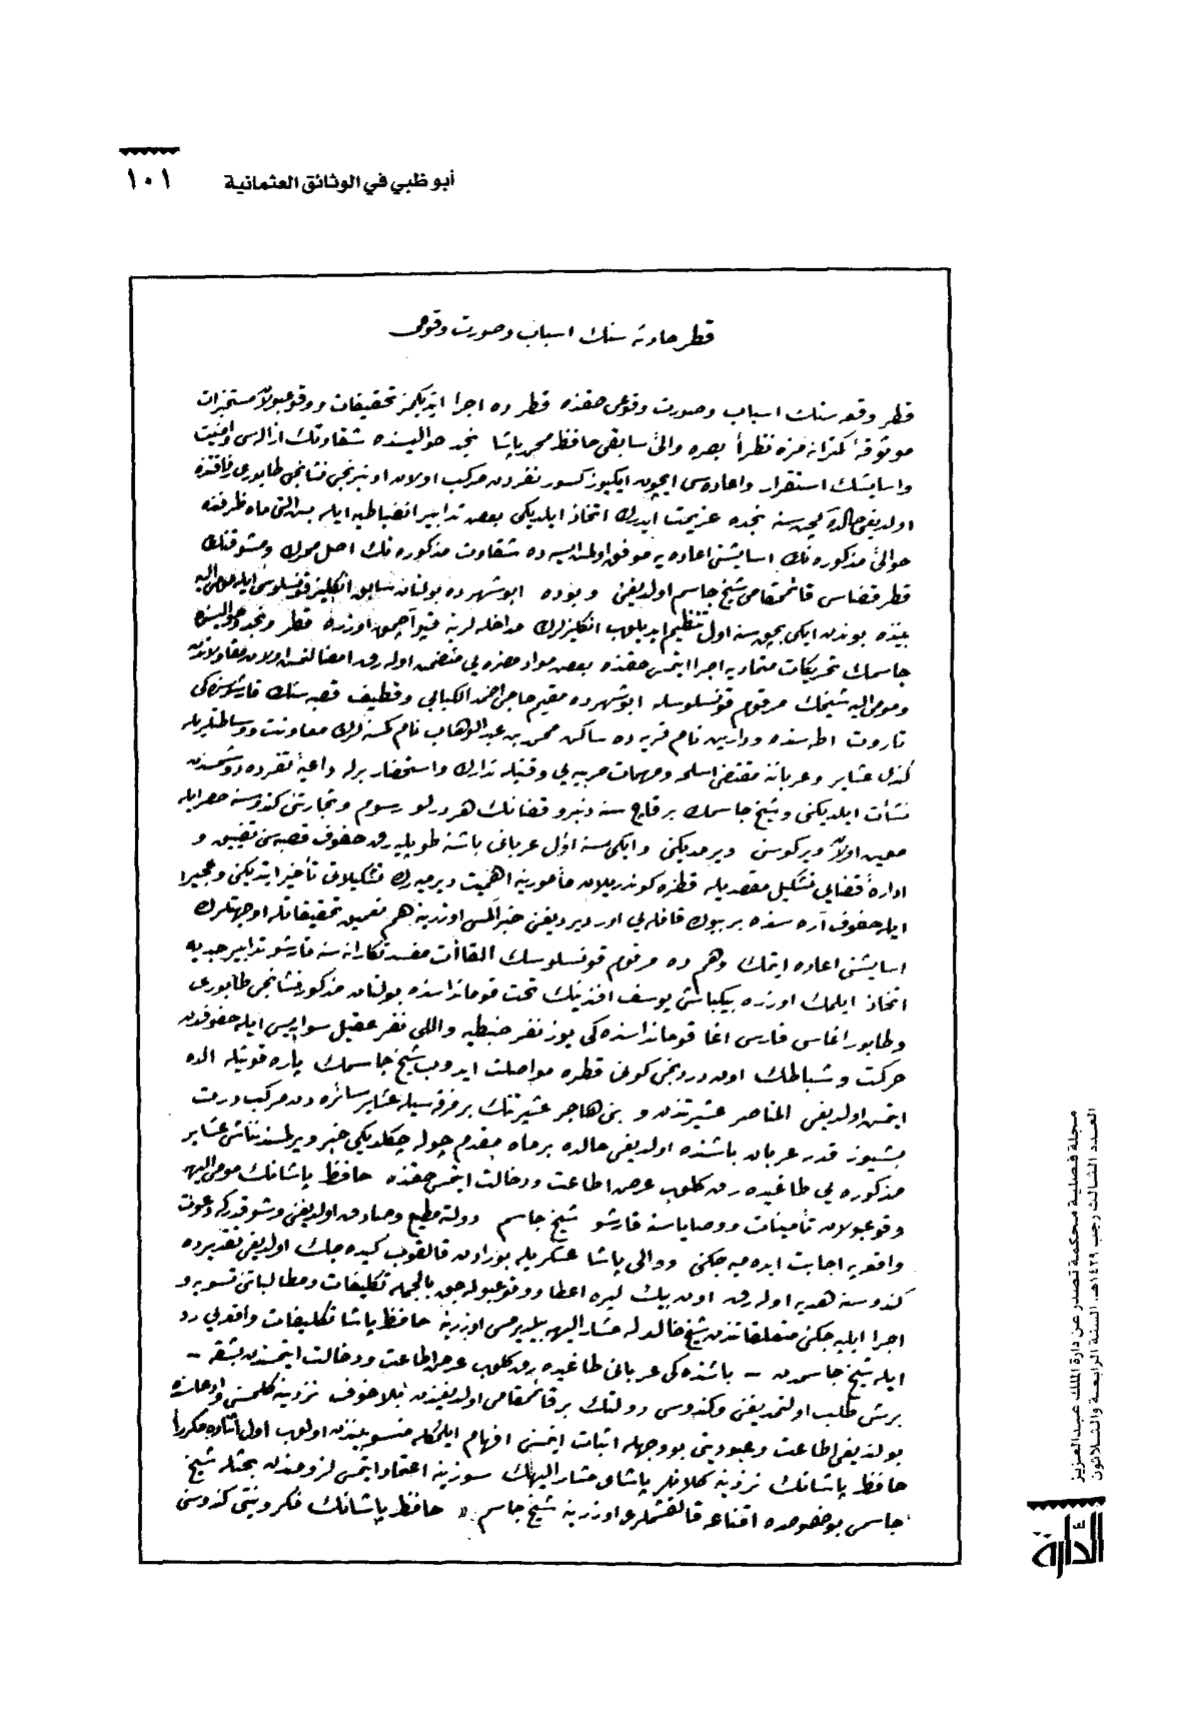 ١٠١
أبو ظبي في الوثائق العثمانية
قطر حادثه سنك اسباب وصورت وقوعى
قطر وقعه سنك اسباب وصورت وقوعى حقنده قطر ده اجرا ايتديكمز تحقيقات ووقوعبولان مستخبرات
موثوقهٔ كمترانه مزه نظراً بصره والئ سابقى حافظ محمد پاشا نجد حواليسنده شقاوتك ازاله سى وامنيت
واسايشك استقرار واعاده سى ايچون ايكيوز كسور نفردن مركب اولان اوننجى نشانجى طابورى رفاقتنده
اولديغى حالده نجده عزيمت ايدرك اتخاذ ايلديكى بعض تدابير انضباطيه ايله بش التى ماه ظرفنده
حوالئ مذكوره نك اسايشنى اعاده يه موفق اولمش ايسه ده شقاوت مذكوره نك اصل محرك ومشوقنك
قطر قضاسى قائممقامى شيخ جاسم اولديغى وبوده ابوشهر ده بولنان سابق انكليز قونسلوسى ايله مومى اليه
بيننده بوندن ايكى بچق سنه اول تنظيم ايديلوب انكليزلرك مداخله لرينه قپو آچمق اوزره قطر ونجد حواليسنده
جاسمك تحريكات متماديه اجرا ايتمسى حقنده بعض مواد مضره يى متضمن اوله رق امضا اولنان مقاوله نك
ومومى اليه شيخك مرقوم قونسلوسله ابوشهر ده مقيم حاجى احمد الكبابى وقطيف قصبه سنك قارشوسنده كى
تاروت اطه سنده ودارين نام قريه ده ساكن محمد بن عبدالوهاب نام كمسه لرك معاونت ووساطتلريله
كندى عشاير وعرباننه مقتضى اسلحه ومهمات حربيه يى وقتيله تدارك واستحضار برله داعيهٔ تفرده دوشمسندن
نشأت ايلديكى وشيخ جاسمك بر قاچ سنه دنبرو قضانك هر درلو رسوم وتجارتنى كندوسنه حصر ايله
معين اولان ويركوسنى ويرمديكى وايكى سنه اول عربانى باشنه طوپليه رق حفوف قصبه سنى تضييق و
ادارهٔ قضايى تشكيل مقصديله قطره كوندريلان مأمورينه اهميت ويرميه رك تشكيلاتى تأخير ايتديكى وعجير
ايله حفوف آره سنده بر بيوك قافله يى اورديرديغى خبر آلنمسى اوزرينه هم تعميق تحقيقاتله او جهتلرك
اسايشنى اعاده ايتمك وهم ده مرقوم قونسلوسك القاآت مفسدتكارانه سنه قارشو تدابير جديه
اتخاذ ايلمك اوزره بيكباشى يوسف افندينك تحت قوماندا سنده بولنان مذكور نشانجى طابورى
وطابور اغاسى فارس اغا قومانداسنده كى يوز نفر ضبطيه واللى نفر عقيل سواريسى ايله حفوفدن
حركت وشباطك اون دردنجى كونى قطره مواصلت ايدوب شيخ جاسمك پاره قوتيله الده
ايتمش اولديغى المناصر عشيرتندن و بنى هاجر عشيرتنك بر فرقه سيله عشاير سائره دن مركب درت
بشيوز قدر عربان باشنده اولديغى حالده بر ماه مقدم چوله چكلديكى خبر ويرلمسندناشى عشاير
مذكوره يى طاغيده رق كلوب عرض اطاعت ودخالت ايتمسى حقنده حافظ پاشانك مومى اليهه
وقوعبولان تأمينات ووصاياسنه قارشو شيخ جاسم دولته مطيع وصادق اولديغى وشو قدركه دعوت
واقعه يه اجابت ايده ميه جكنى ووالى پاشا عسكريله بورادن قالقوب كيده جك اولديغى تقديرده
كندوسنه هديه اوله رق اون بيك ليره اعطا ووقوعبوله جق بالجمله تكليفات ومطالباتى تسويه و
اجرا ايليه جكنى متعلقاتندن شيخ خالد له مشار اليهه بيلديرمسى اوزرينه حافظ پاشا تكليفات واقعه يى رد
ايله شيخ جاسمدن – باشنده كى عربانى طاغيده رق كلوب عرض اطاعت ودخالت ايتمسندن بشقه –
برشى طلب اولنمديغى وكندوسى دولتك بر قائممقامى اولديغندن بلاخوف نزدينه كلمسنى وادعاسنده
بولنديغى اطاعت وعبوديتى بووجهله اثبات ايتمسنى افهام ايلمكله منسوبيندن اولوب اول اثناده مكرراً
حافظ پاشانك نزدينه كلانلر پاشاى مشار اليهك سوزينه اعتماد ايتمسى لزومندن بحثله شيخ
جاسمى بو خصوصده اقناعه قالقشملرى اوزرينه شيخ جاسم « حافظ پاشانك فكر ونيتى كندوسنى
مجلة فصلية محكمة تصدر عن دارة الملك عبدالعزيز
العدد الثالث رجب ١٤٢٩هـ، السنة الرابعة والثلاثون
الدارة